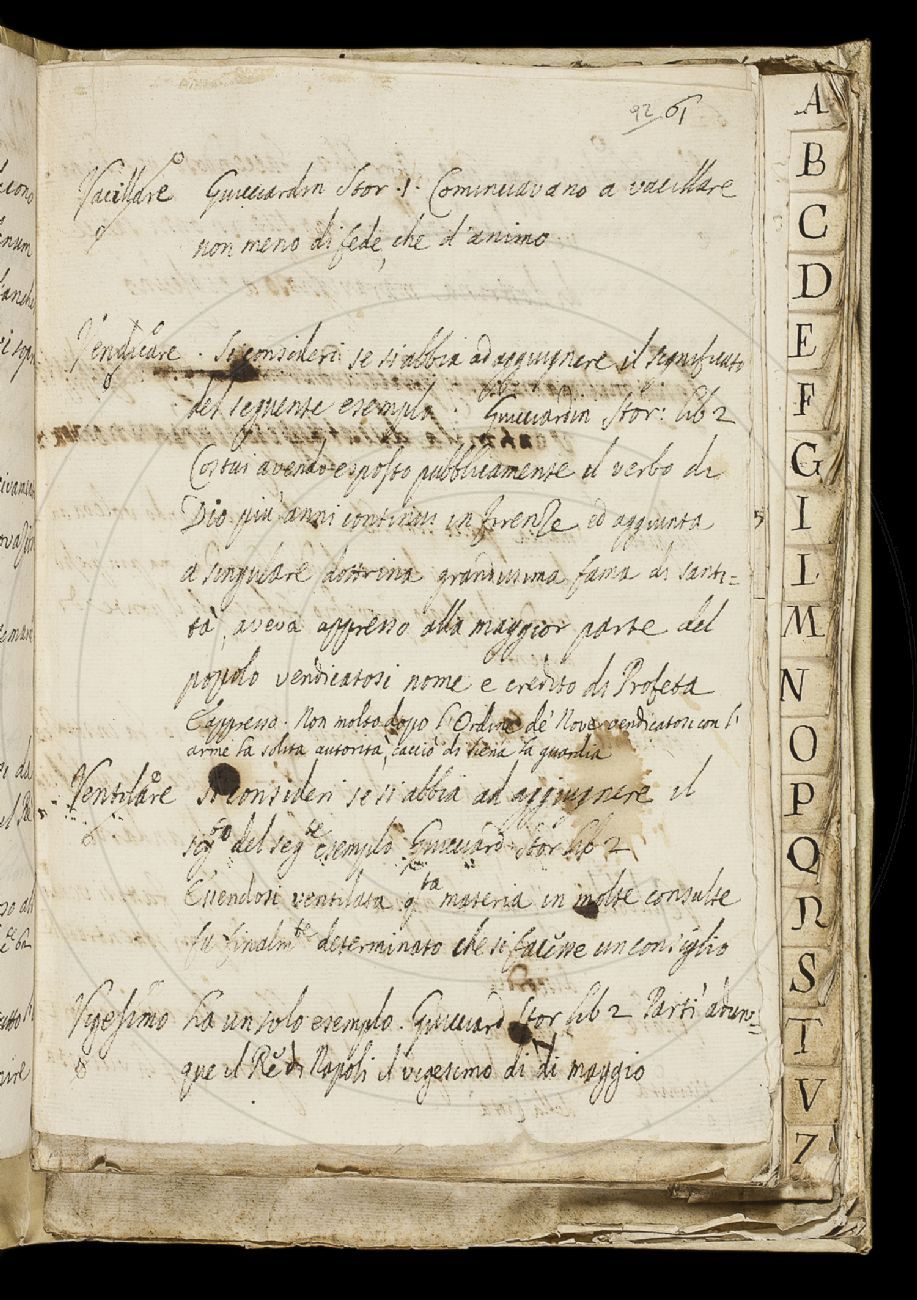 92 61
Vacillare Guicciardin Stor. 1. Cominciavano a vacillare
non meno di fede, che d'animo.
Vendicare. Si consideri se si abbia ad aggiugnere il significato
del seguente esempio. Guicciardin Stor: lib 2
Costui avendo esposto pubblicamente il verbo di
Dio più anni continui in Firenze ed aggiunta
a singulare dottrina grandissima fama di santi=
tà, aveva appresso alla maggior parte del
popolo vendicatosi nome e credito di Profeta
E appresso. Non molto dopo l'Ordine de' Nove vendicatosi con l'
arme la solita autorità, cacciò di Siena la guardia
Ventilare si consideri se si abbia ad aggiugnere il
sig.to del seg.te esemplo Guicciard Stor lib 2
Essendosi ventilata q.ta materia in molte consulte
fu finalm.te determinato che si facesse un consiglio
Vigesimo ha un solo esemplo. Guicciard Stor lib 2 Partì adun=
que il Re di Napoli il vigesimo dì di maggio
A
B
C
D
E
F
G
I
L
M
N
O
P
Q
R
S
T
V
Z